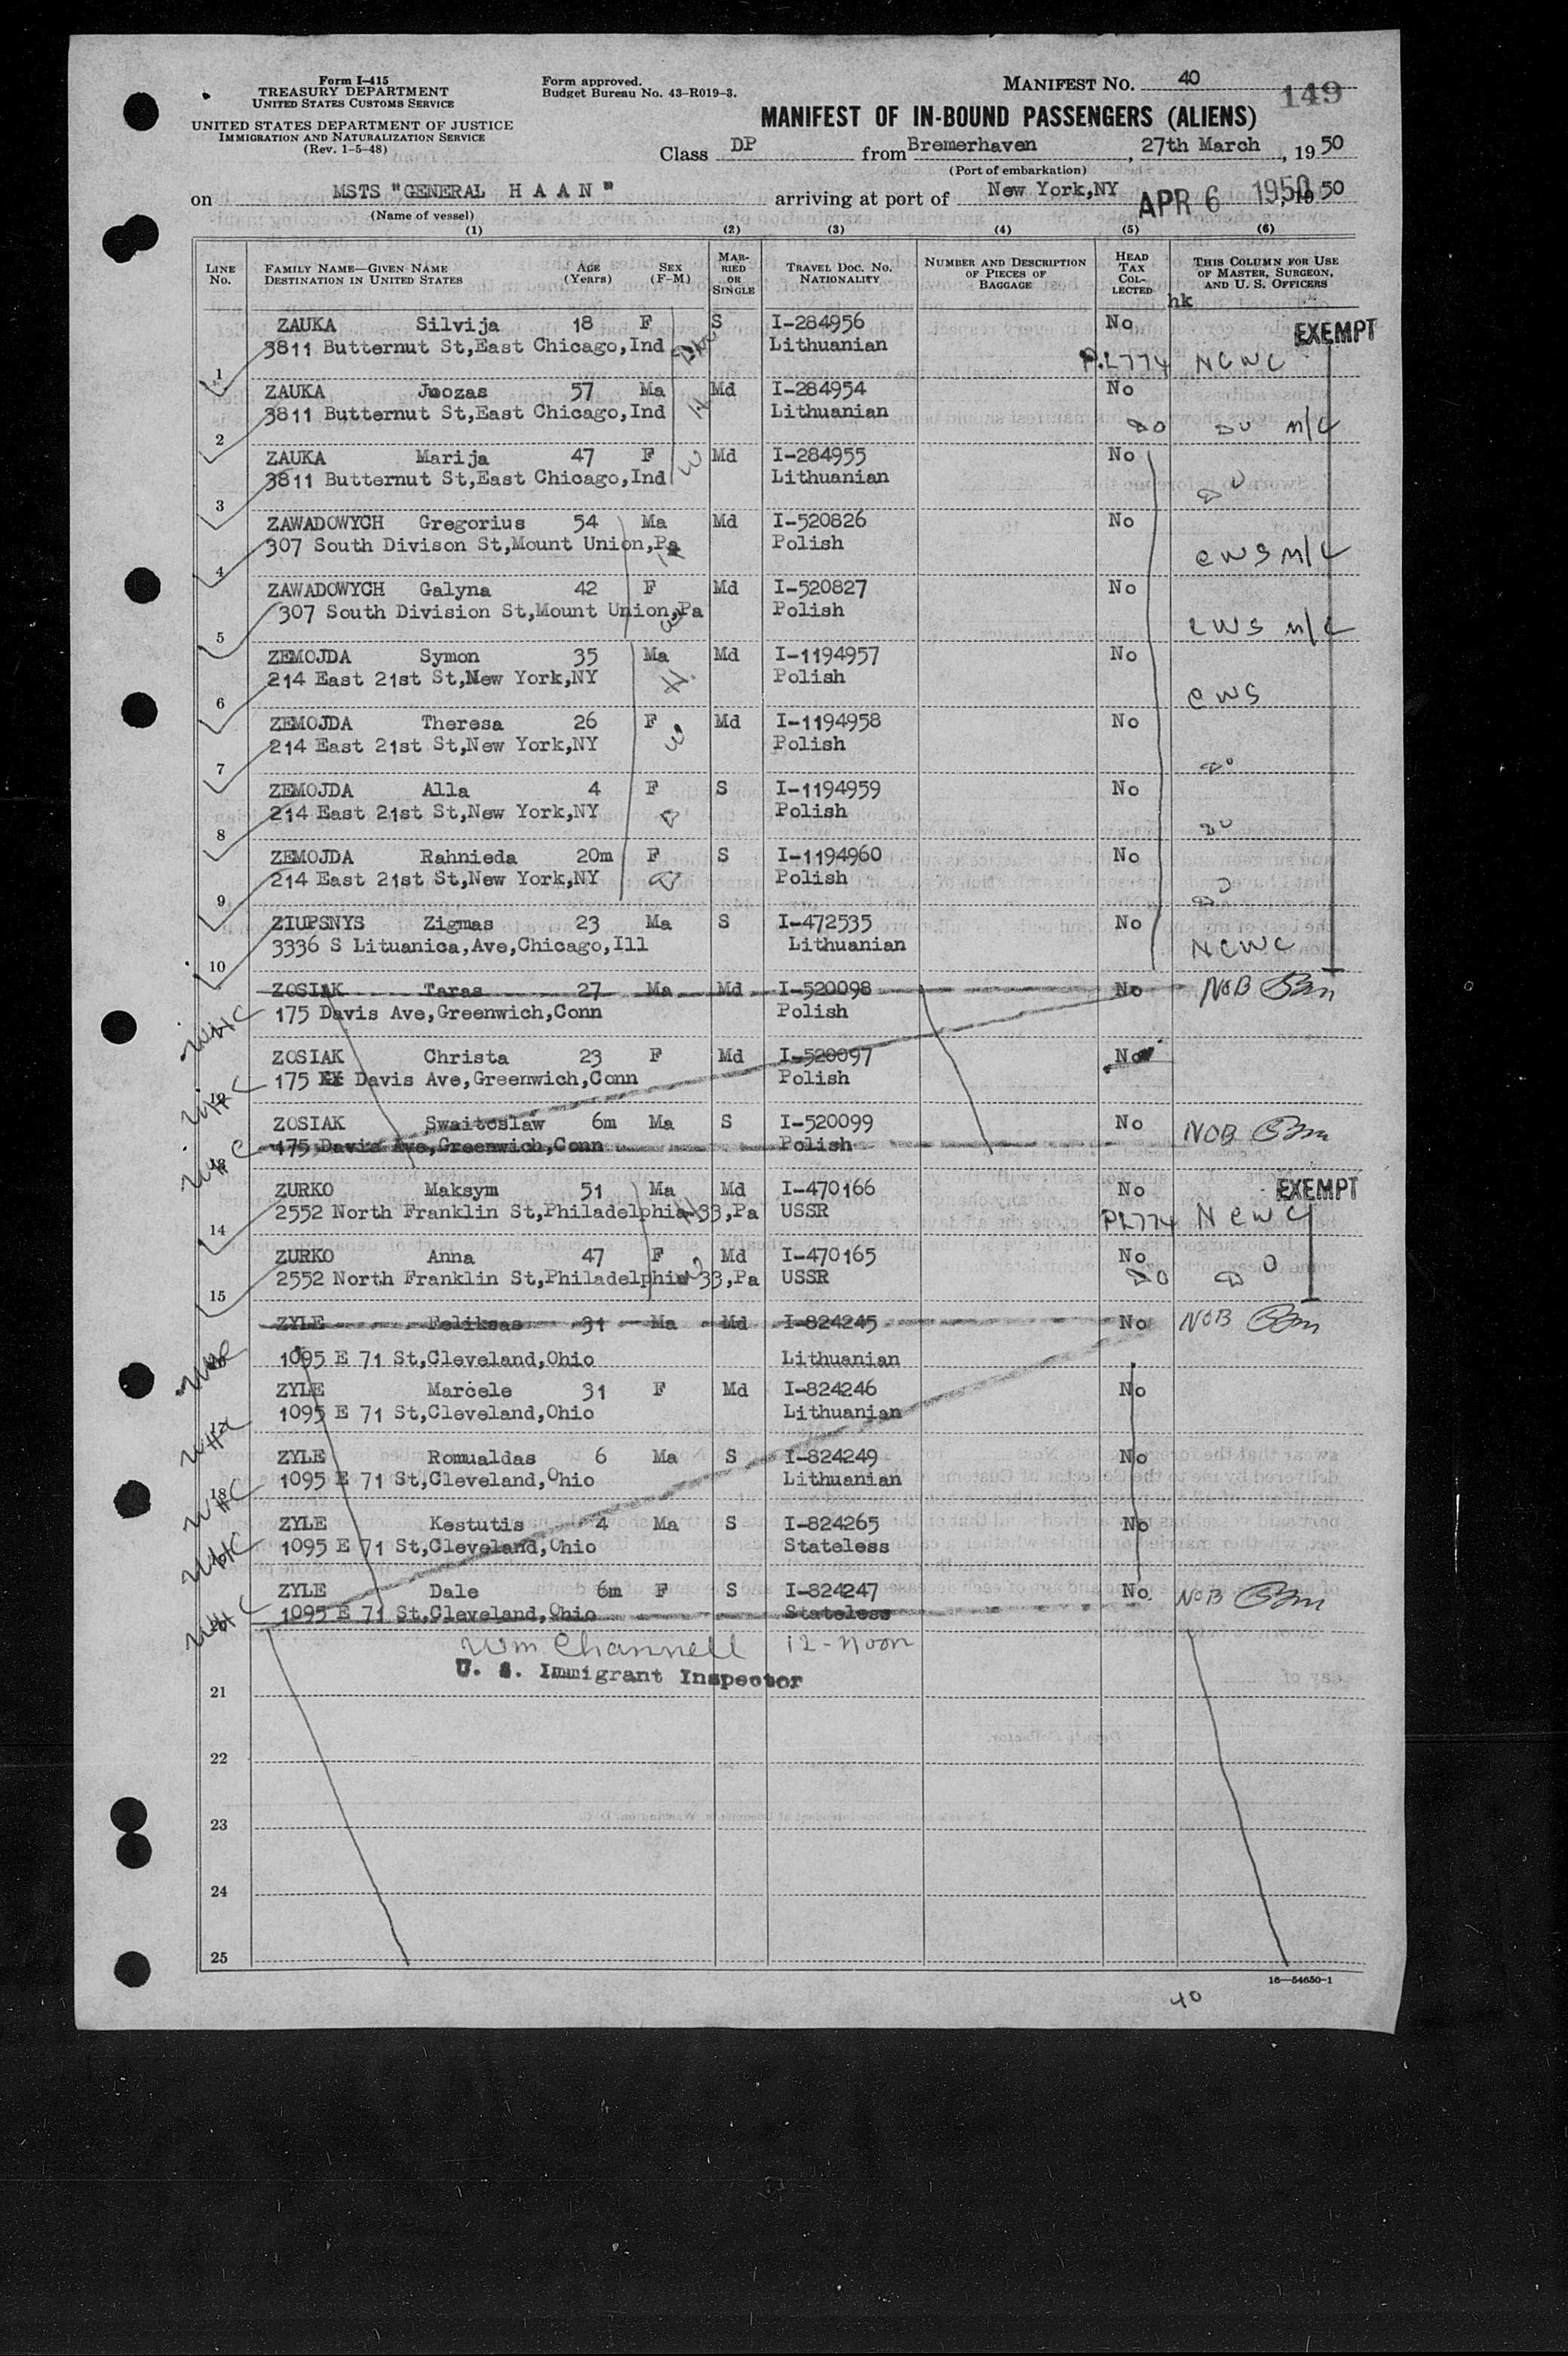 Form I-415
TREASURY DEPARTMENT
UNITED STATES CUSTOMS SERVICE
UNITED STATES DEPARTMENT OF JUSTICE
IMMIGRATION AND NATURALIZATION SERVICE
(Rev. 1-5-48)
Form approved.
Budget Bureau No. 43-R019-3.
MANIFEST NO. 40
149
MANIFEST OF IN-BOUND PASSENGERS (ALIENS)
Class DP from Bremerhaven, 27th March, 1950
(Port of embarkation)
on MSTS "GENERAL H A A N" arriving at port of New York,NY APR 6 1950, 1950
(Name of vessel)
(1) (2) (3) (4) (5) (6)
LINE No. FAMILY NAME—GIVEN NAME DESTINATION IN UNITED STATES AGE (Years) SEX (F-M) MARRIED OR SINGLE TRAVEL DOC. NO. NATIONALITY NUMBER AND DESCRIPTION OF PIECES OF BAGGAGE HEAD TAX COLLECTED THIS COLUMN FOR USE OF MASTER, SURGEON, AND U. S. OFFICERS
hk
ZAUKA Silvija 18 F S I-284956 No EXEMPT
1 3811 Butternut St,East Chicago,Ind Lithuanian P.L774 NCWC
ZAUKA Juozas 57 Ma Md I-284954 No
2 3811 Butternut St,East Chicago,Ind H Lithuanian DO DO M/C
ZAUKA Marija 47 F Md I-284955 No
3 3811 Butternut St,East Chicago,Ind W Lithuanian DO
ZAWADOWYCH Gregorius 54 Ma Md I-520826 No
4 307 South Divison St,Mount Union,Pa H Polish CWS M/C
ZAWADOWYCH Galyna 42 F Md I-520827 No
5 307 South Division St,Mount Union,Pa W Polish CWS M/C
ZEMOJDA Symon 35 Ma Md I-1194957 No
6 214 East 21st St,New York,NY H. Polish CWS
ZEMOJDA Theresa 26 F Md I-1194958 No
7 214 East 21st St,New York,NY W Polish DO
ZEMOJDA Alla 4 F S I-1194959 No
8 214 East 21st St,New York,NY D Polish DO
ZEMOJDA Rahnieda 20m F S I-1194960 No
9 214 East 21st St,New York,NY D Polish DO
ZIUPSNYS Zigmas 23 Ma S I-472535 No
10 3336 S Lituanica,Ave,Chicago,Ill Lithuanian NCWC
ZOSIAK Taras 27 Ma Md I-520098 No NOB
175 Davis Ave,Greenwich,Conn Polish
WHC
ZOSIAK Christa 23 F Md I-520097 No
12 175 Davis Ave,Greenwich,Conn Polish
WHC
ZOSIAK Swaitoslaw 6m Ma S I-520099 No NOB
13 175 Davis Ave,Greenwich,Conn Polish
WHC
ZURKO Maksym 51 Ma Md I-470166 No EXEMPT
14 2552 North Franklin St,Philadelphia 33,Pa H USSR PL774 NCWC
ZURKO Anna 47 F Md I-470165 No
15 2552 North Franklin St,Philadelphia 33,Pa W USSR DO DO
ZYLE Feliksas 31 Ma Md I-824245 No NOB
1095 E 71 St,Cleveland,Ohio Lithuanian
WHC
ZYLE Marcele 31 F Md I-824246 No
17 1095 E 71 St,Cleveland,Ohio Lithuanian
WHC
ZYLE Romualdas 6 Ma S I-824249 No
18 1095 E 71 St,Cleveland,Ohio Lithuanian
WHC
ZYLE Kestutis 4 Ma S I-824265 No
1095 E 71 St,Cleveland,Ohio Stateless
WHC
ZYLE Dale 6m F S I-824247 No. NOB
20 1095 E 71 St,Cleveland,Ohio Stateless
WHC
Wm Channell 12-Noon
U. S. Immigrant Inspector
21
22
23
24
25
16—54650-1
40